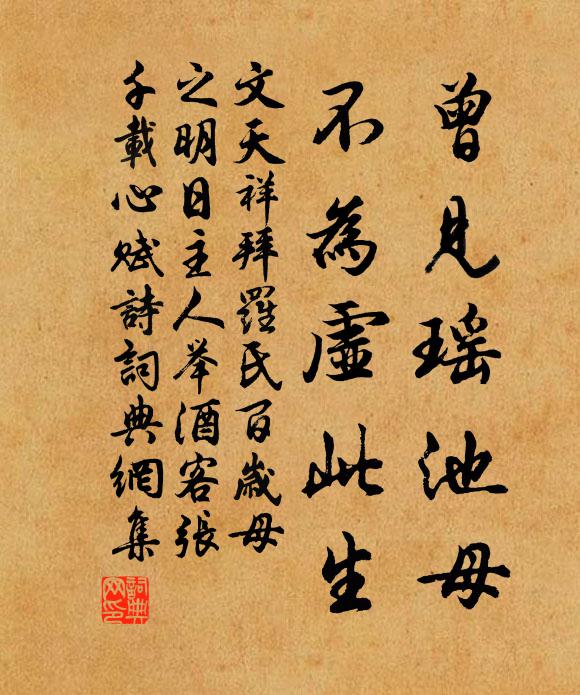 曾見瑶池母
不為虛此生
文天祥拜羅氏百歲母
之明日主人举酒客張
千載心賦詩詞典網集
詞典
网印